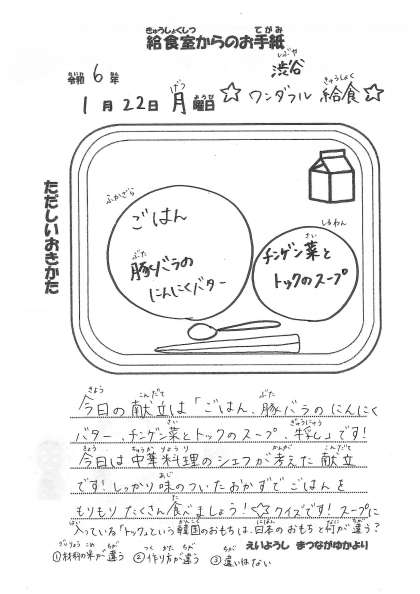 給食室からのお手紙
令和6年
渋谷
1月22日月曜日 ☆ワンダフル給食☆
ただしいおきかた
ふかざら
ごはん
豚バラの
にんにくバター
しるわん
チンゲン菜と
トックのスープ
今日の献立は「ごはん、豚バラのにんにく
バター、チンゲン菜とトックのスープ、牛乳」です!
今日は中華料理のシェフが考えた献立
です!しっかり味のついたおかずでごはんを
もりもりたくさん食べましょう!☆クイズです!スープに
入っている「トック」という韓国のおもちは、日本のおもちと何が違う?
①材料の米が違う ②作り方が違う ③違いはない
えいようし まつながゆかより